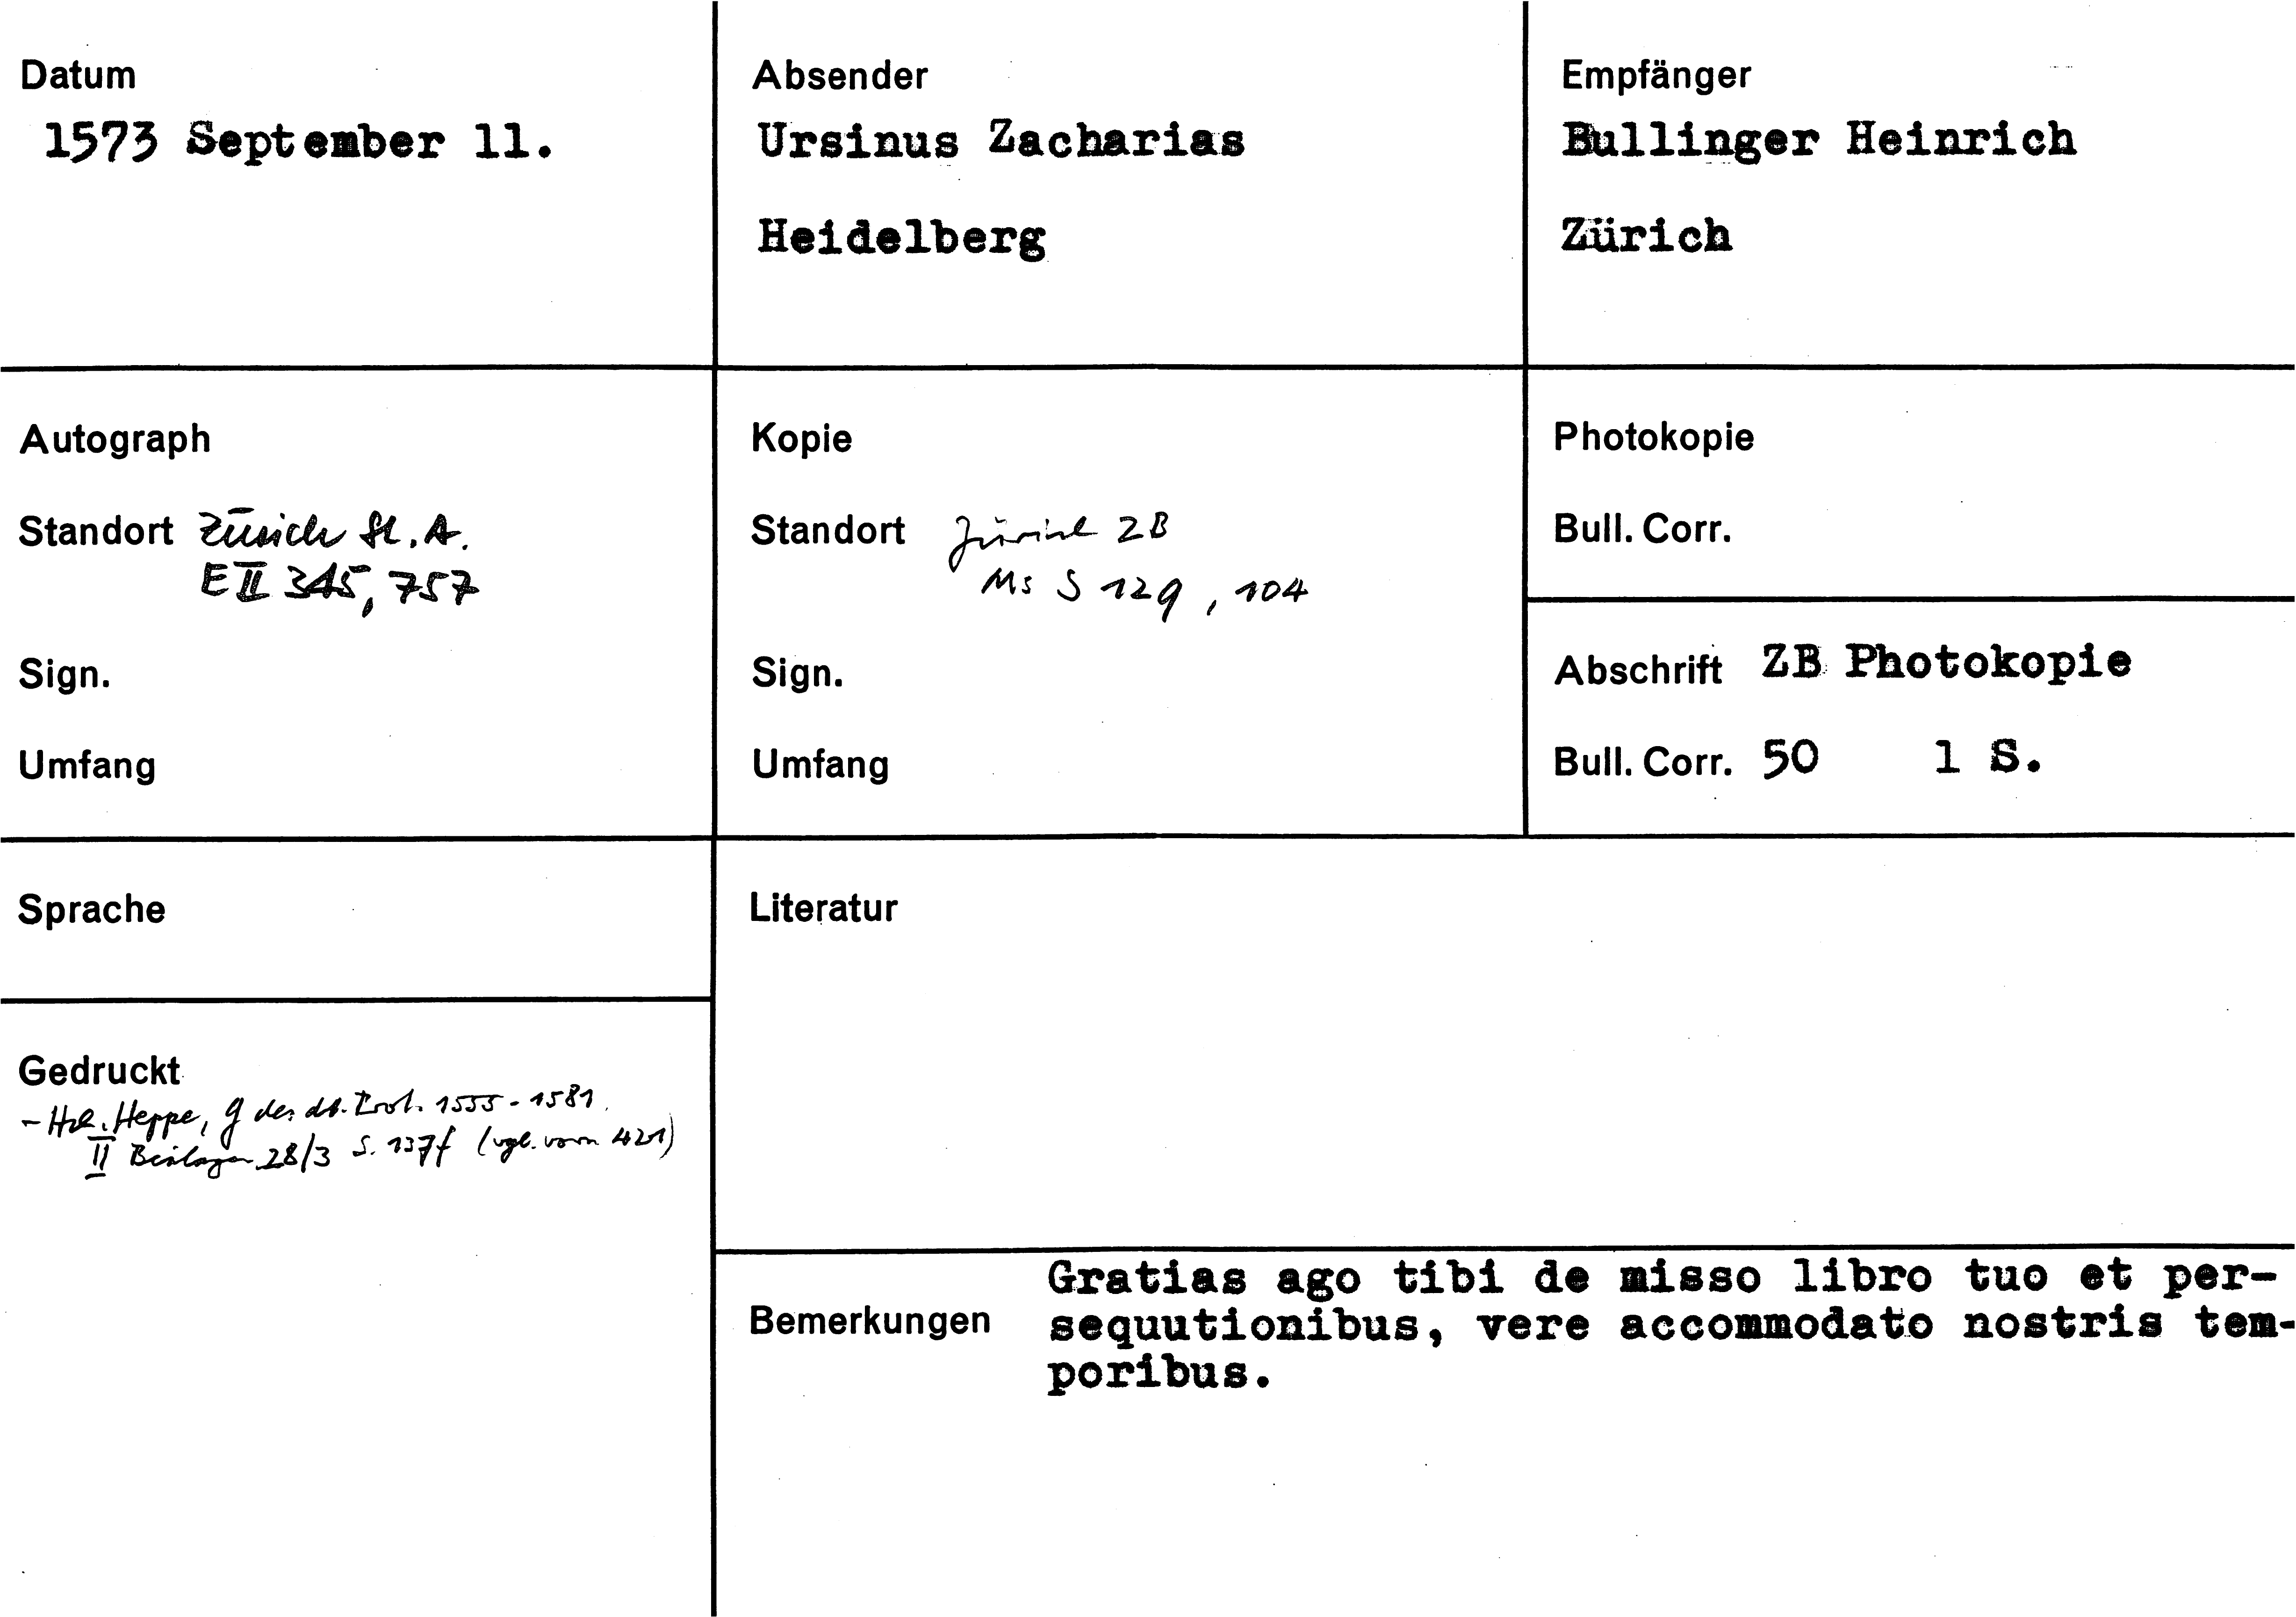 Datum
1573 September 11.
Absender
Ursinus Zacharias
Heidelberg
Empfänger
Bullinger Heinrich
Zürich
Autograph
Standort Zürich St. A.
E II 345, 757
Sign.
Umfang
Kopie
Standort Zürich ZB
Ms S 129, 104
Sign.
Umfang
Photokopie
Bull. Corr.
Abschrift ZB Photokopie
Bull. Corr. 50 1 S.
Sprache
Gedruckt
- Heppe, G des dt. Prot. 1555-1581.
II Beilagen 28/3 S. 137f (vgl. vorn 421)
Literatur
Bemerkungen
Gratias ago tibi de misso libro tuo et per-
sequutionibus, vere accommodato nostris tem-
poribus.